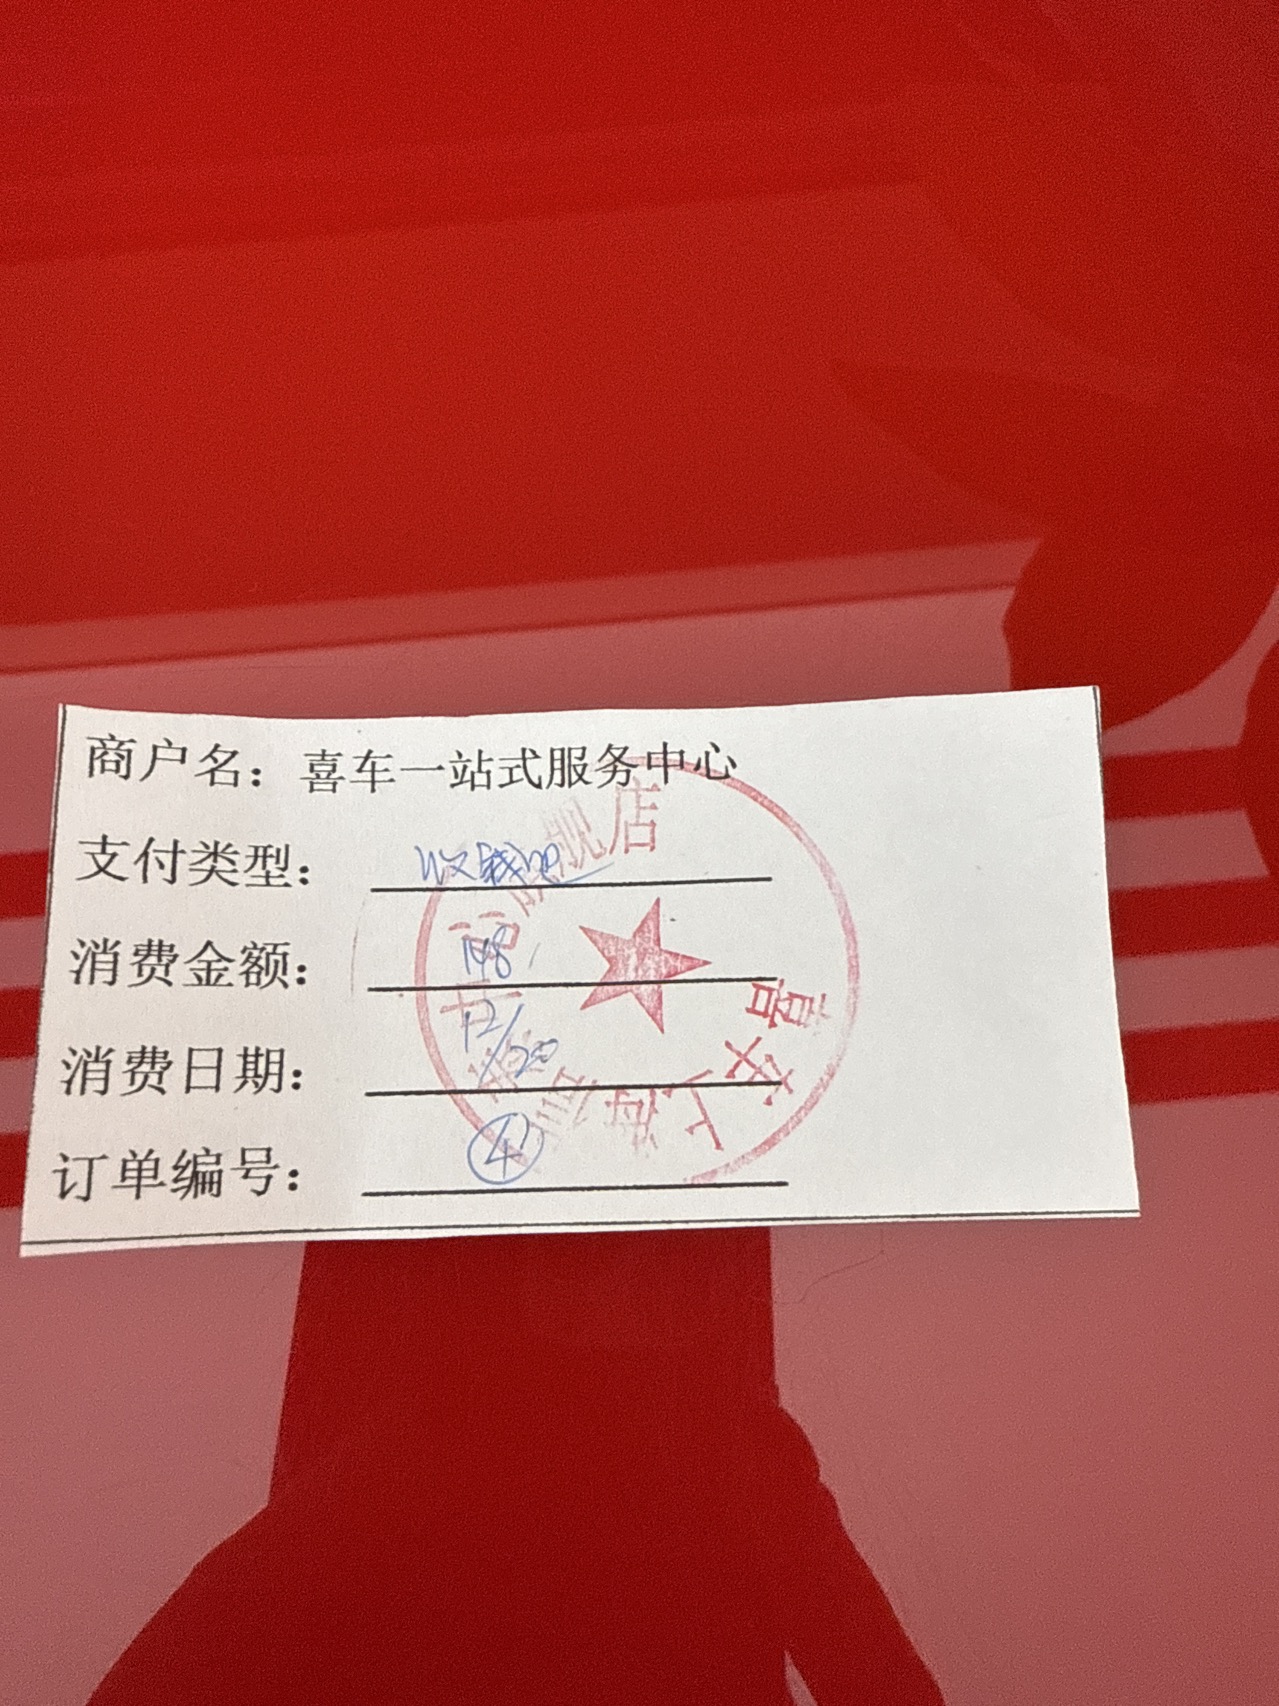 商户名：喜车一站式服务中心
支付类型：收钱吧
消费金额：148
消费日期：12/20
订单编号：④
旗舰店
喜车
上海